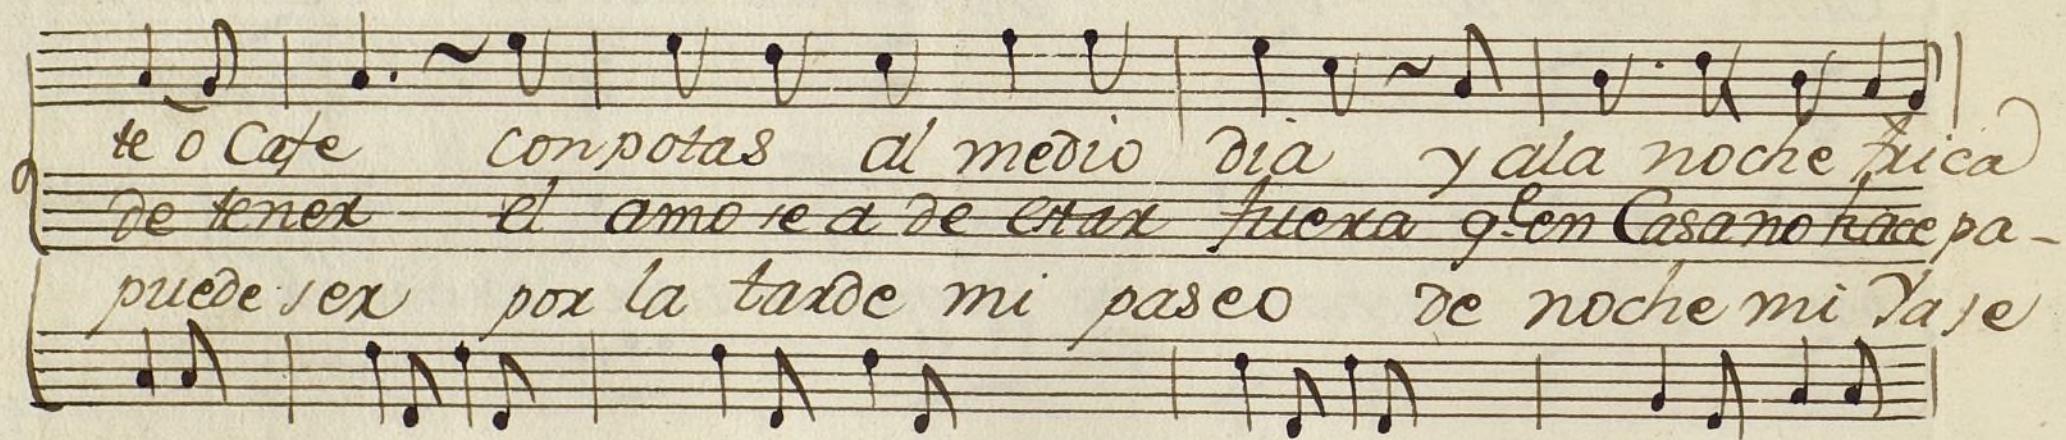 te o Cafe conpotas al medio dia y ala noche frica
de tener el amo se a de estar fuera q.e en Casa no hace pa-
puede ser por la tarde mi paseo de noche mi Vase